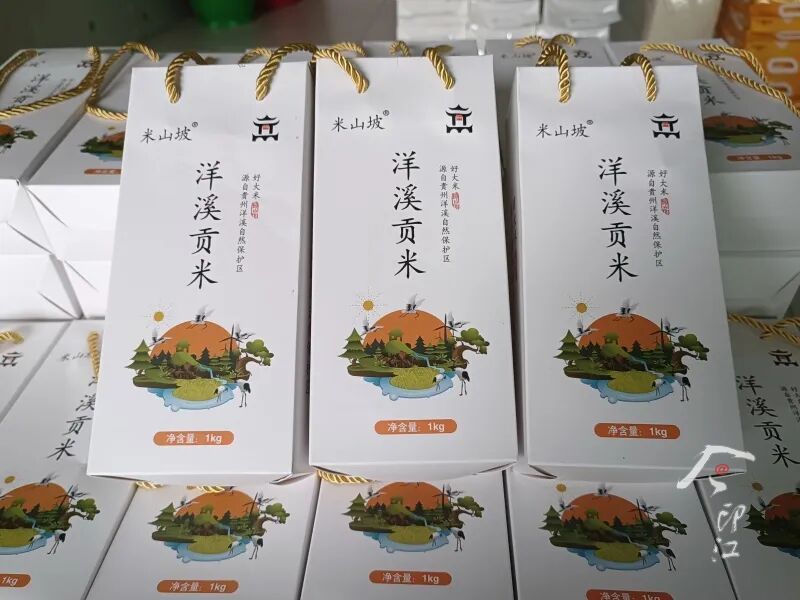 米山坡®
洋溪贡米
好大米
源自贵州洋溪自然保护区
净含量：1kg
米山坡®
洋溪贡米
好大米
源自贵州洋溪自然保护区
净含量：1kg
米山坡®
洋溪贡米
好大米
源自贵州洋溪自然保护区
净含量：1kg
洋溪
米山
洋溪贡米
1kg
净含量：1kg
净含量：1kg
净含量：1kg
今印江